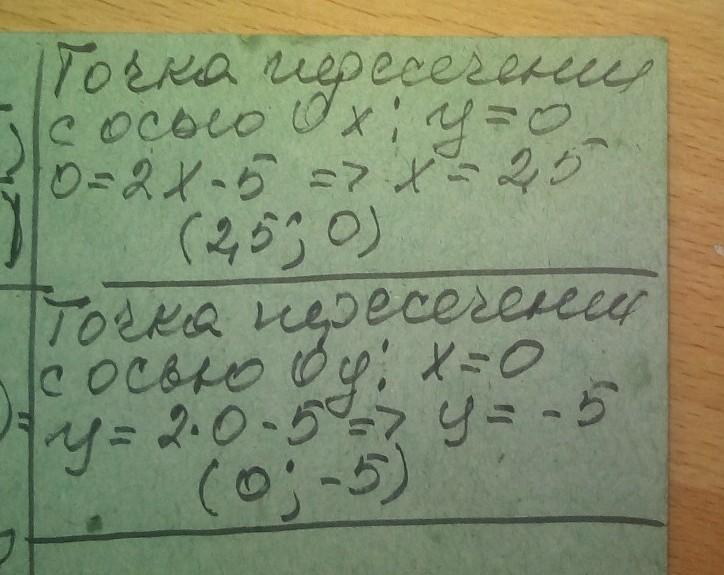 Точка пересечения
с осью Ox: y=0
0=2x-5 => x=2,5
(2,5; 0)
Точка пересечения
с осью Oy: x=0
y=2·0-5=> y=-5
(0; -5)